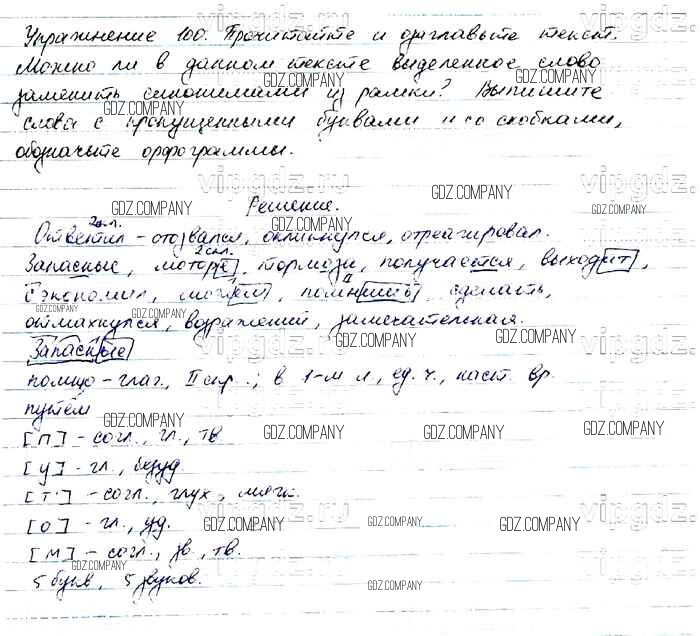 Упражнение 100. Прочитайте и озаглавьте текст.
Можно ли в данном тексте выделенное слово
заменить синонимами из рамки? Выпишите
слова с пропущенными буквами и со скобками,
обозначьте орфограммы.
Решение.
Ответил - отозвался, откликнулся, отреагировал.
Запасные, моторе, тормози, получается, выходит,
сэкономил, можем, помнишь, сделать,
отмахнулся, возражений, замечательная.
Запасные
помню - глаг., II спр.; в 1-м л., ед. ч., наст. вр.
путём
[п] - согл., гл., тв
[у] - гл., безуд.
[т'] - согл., глух., мягк.
[о] - гл., уд.
[м] - согл., зв., тв.
5 букв, 5 звуков.
vipgdz.ru
GDZ.COMPANY